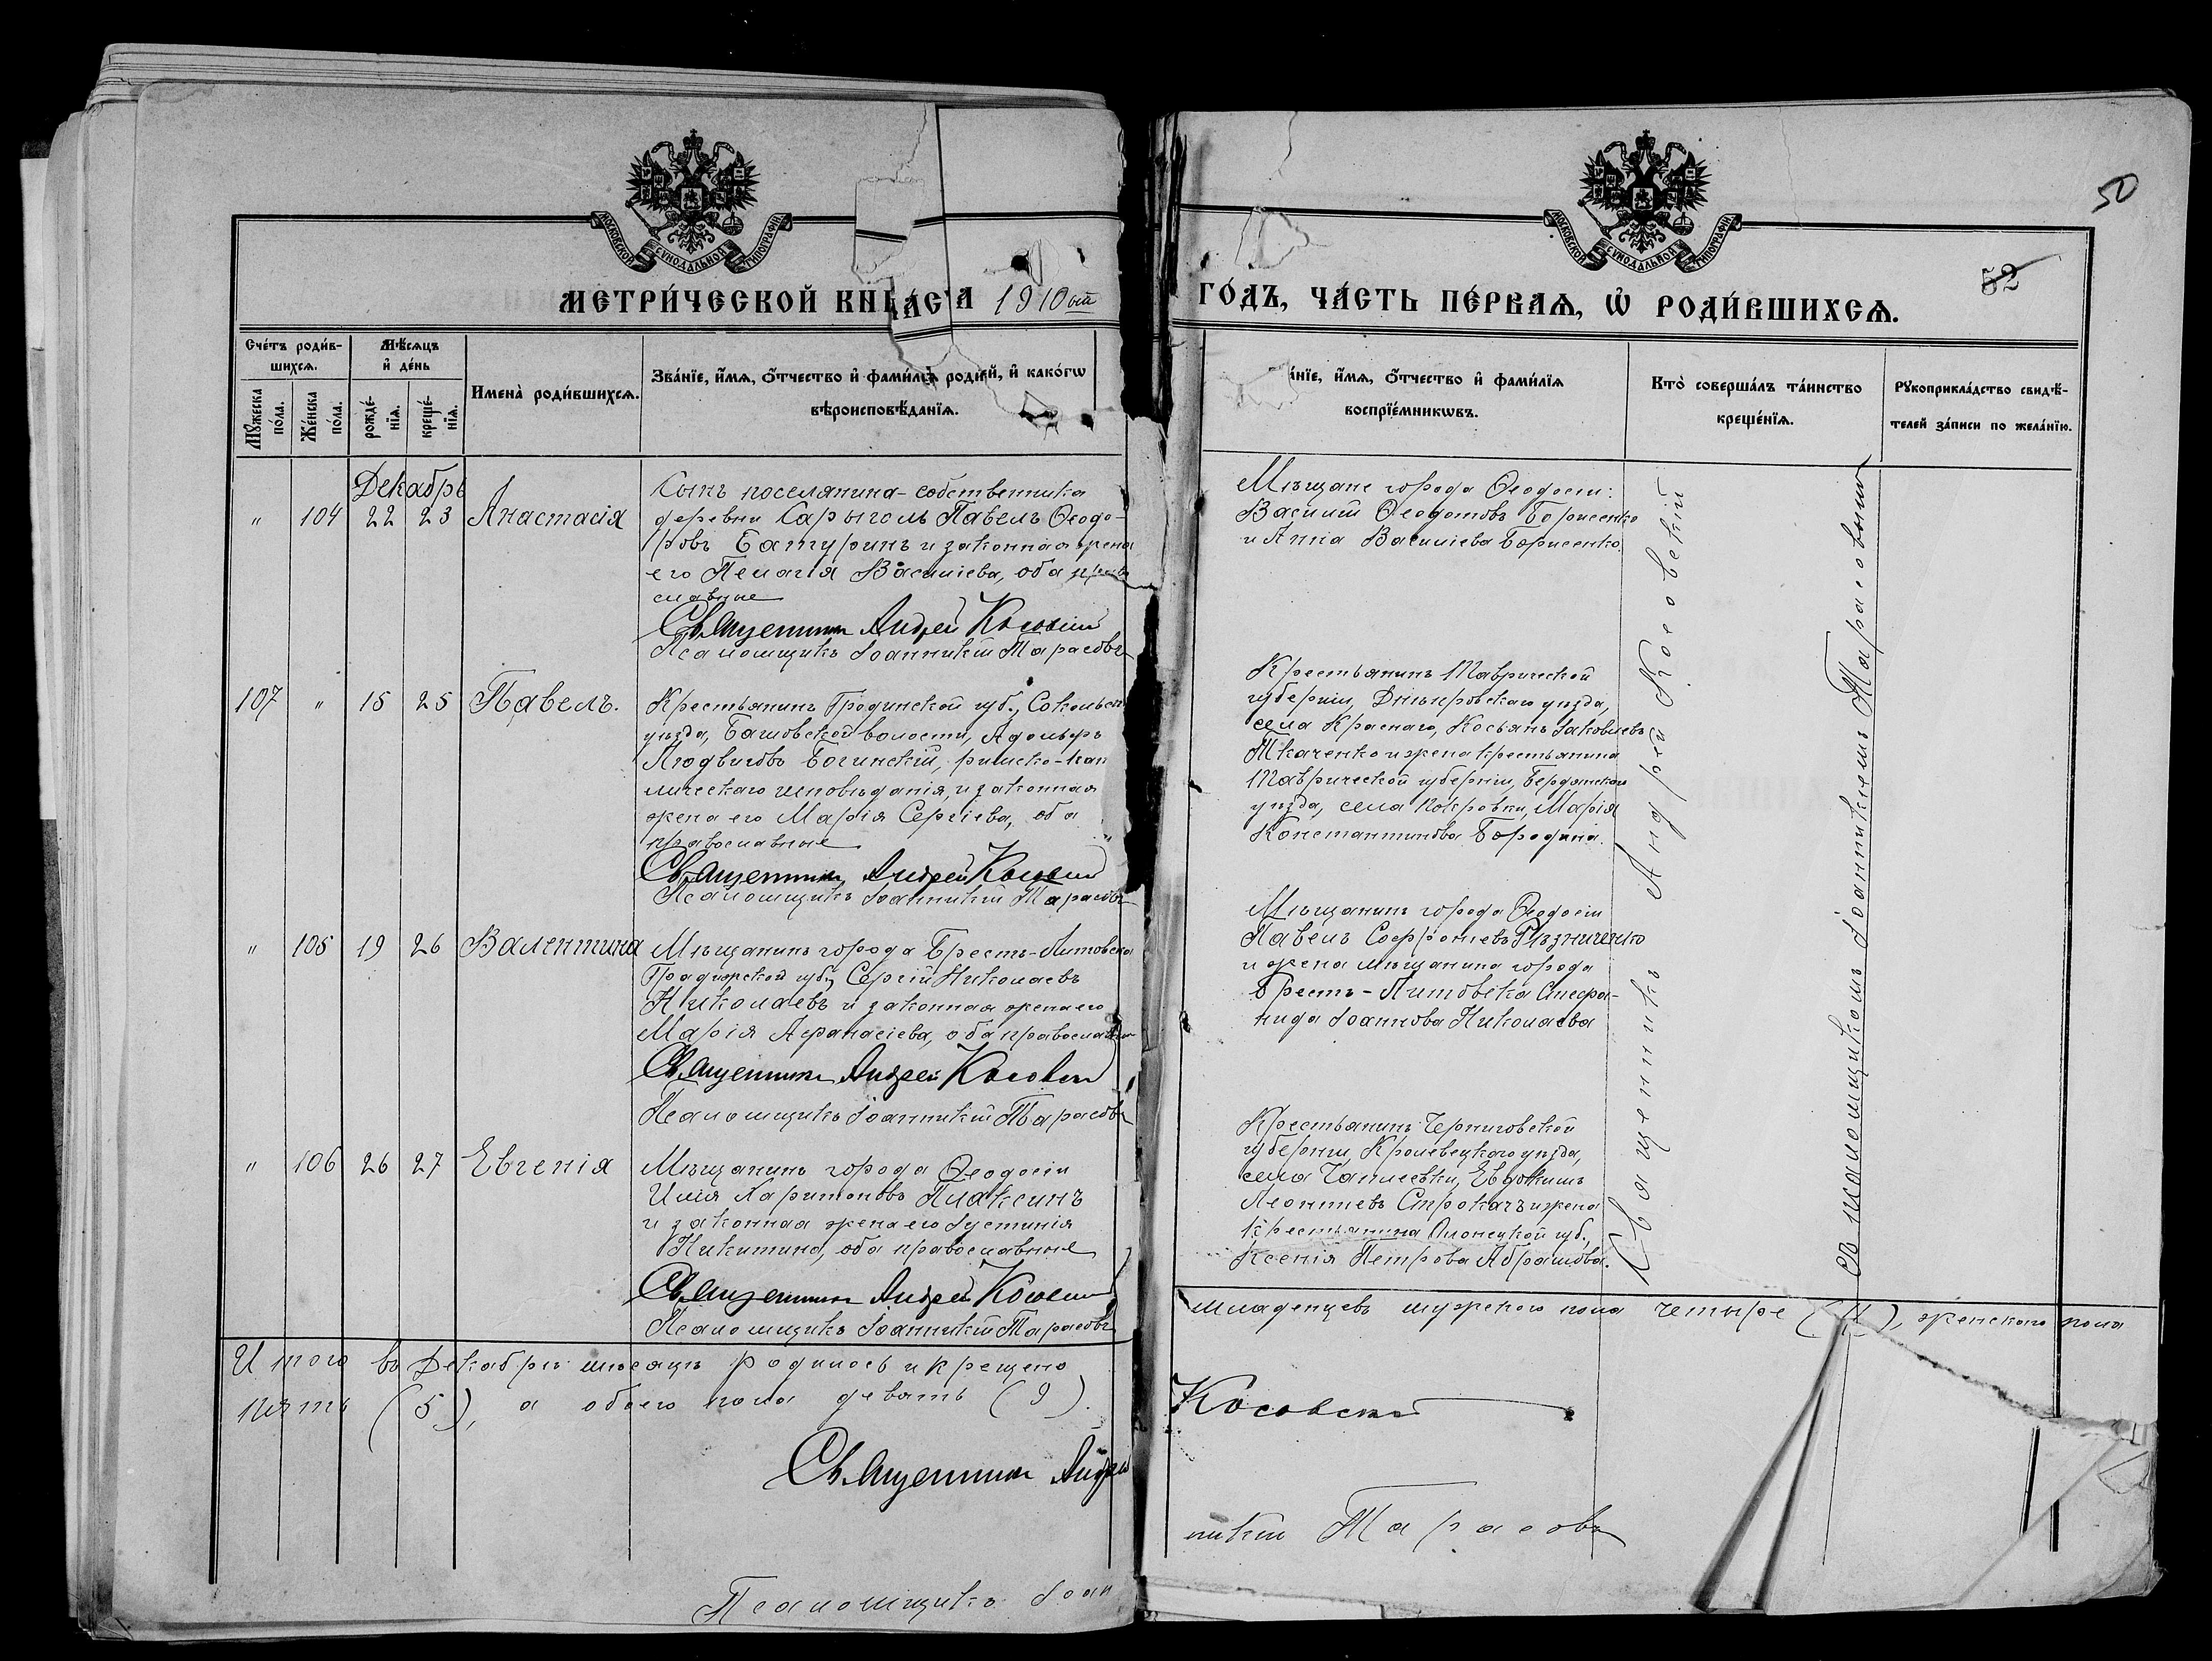 50
52
МОСКОВСКОЙ СѴНОДАЛЬНОЙ ТИПОГРАФІИ
МОСКОВСКОЙ СѴНОДАЛЬНОЙ ТИПОГРАФІИ
МЕТРИ́ЧЕСКОЙ КНИ 1910ый ГО́ДЪ, ЧА́СТЬ ПЕ́РВАѦ, Ѡ҆ РОДИ́ВШИХСѦ.
Сче́тъ роди́в-
шихсѧ.
Мꙋ́жеска по́ла.
Же́нска по́ла.
Мѣ́сѧцъ
и҆ де́нь
рожде́-
нїѧ.
креще́-
нїѧ.
Имена̀ роди́вшихсѧ.
Зва́нїе, и҆́мѧ, ѻ҆́тчество и҆ фами́лїѧ роди́телей, и҆ како́гѡ
вѣроисповѣ́данїѧ.
а́нїе, и҆́мѧ, ѻ҆́тчество и҆ фами́лїѧ
воспрїе́мникѡвъ.
Кто̀ соверша́лъ та́инство
креще́нїѧ.
Рꙋкоприкла́дство свидѣ́-
телей за́писи по жела́нїю.
Декабрь
" 104 22 23 Анастасія
Сынъ поселянина-собственника
деревни Сарыголь Павелъ Ѳеодо-
ровъ Батуринъ и законная жена
его Пелагія Василіева, оба право
славные
Священникъ Андрей Косовскій
Псаломщикъ Іоанникій Тарасовъ
Мѣщане города Ѳеодосіи:
Василій Ѳеодотовъ Борисенко
и Анна Василіева Борисенко.
107 " 15 25 Павелъ.
Крестьянинъ Гродненской губ., Сокольск
уѣзда, Багновской волости, Адольфъ
Людвиговъ Богинскій, римско-кат
лическаго исповѣданія, и законная
жена его Марія Сергіева, оба
православные
Священникъ Андрей Косовскій
Псаломщикъ Іоанникій Тарасовъ
Крестьянинъ Таврической
губерніи, Днѣпровскаго уѣзда,
села Краснаго, Косьянъ Іаковлевъ
Ткаченко и жена крестьянина
Таврической губерніи, Бердянскаго
уѣзда, села Покровки, Марія
Константинова Бородина.
" 105 19 26 Валентина
Мѣщанинъ города Брестъ-Литовска
Гродненской губ., Сергій Николаевъ
Николаевъ и законная жена его
Марія Аѳанасіева, оба православные
Священникъ Андрей Косовскій
Псаломщикъ Іоанникій Тарасовъ
Мѣщанинъ города Ѳеодосіи
Павелъ Софроніевъ Рѣзниченко
и жена мѣщанина города
Брестъ-Литовска Стефа-
нида Іоаннова Николаева
" 106 26 27 Евгенія
Мѣщанинъ города Ѳеодосіи
Илія Харитоновъ Плаксинъ
и законная жена его Іустинія
Никитина, оба православные
Священникъ Андрей Косовскій
Псаломщикъ Іоанникій Тарасовъ
Крестьянинъ Черниговской
губерніи, Кролевецкаго уѣзда,
села Чаплеевки, Евдокимъ
Леонтіевъ Строкачъ и жена
крестьянина Олонецкой губ.,
Ксенія Петрова Абрамова.
Священникъ Андрей Косовскій
съ псаломщикомъ Іоанникіемъ Тарасовымъ
Итого въ Декабрѣ мѣсяцѣ родилось и крещено младенцевъ мужского пола четыре (4), женскаго пола
пять (5), а обоего пола девять (9).
Священникъ Андрей Косовскій
Псаломщикъ Іоанникій Тарасовъ